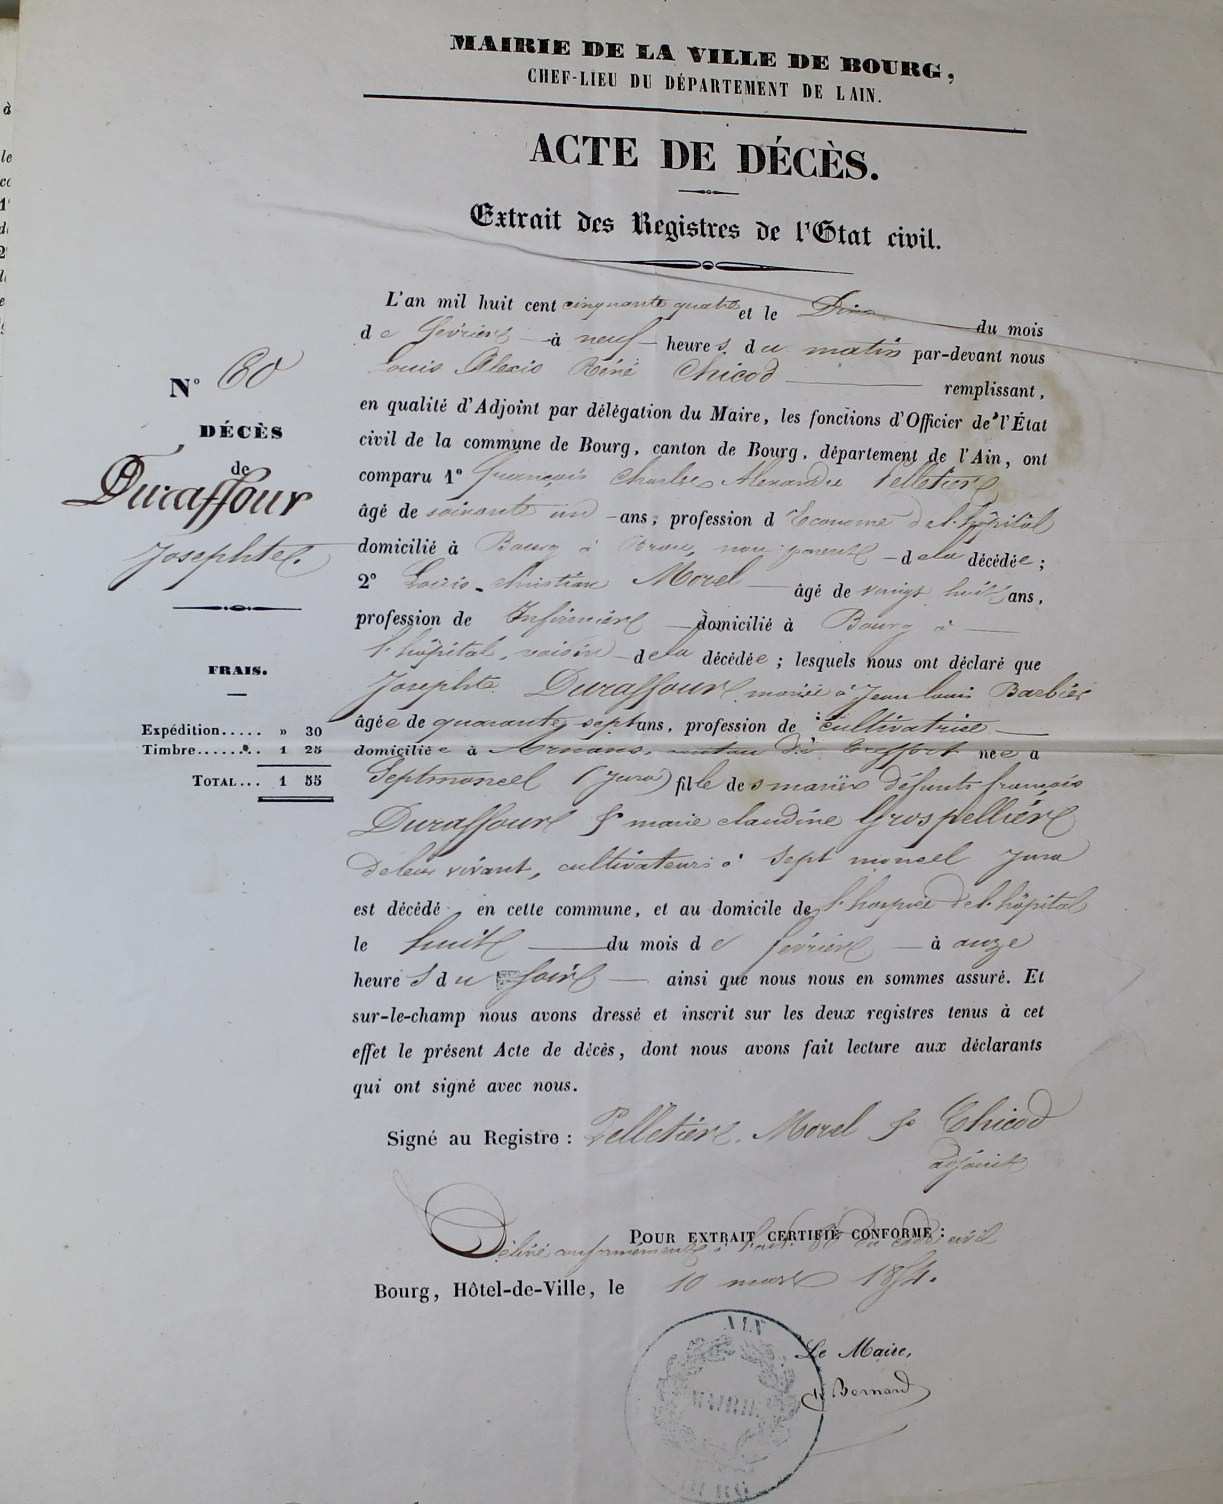 MAIRIE DE LA VILLE DE BOURG,
CHEF-LIEU DU DÉPARTEMENT DE L AIN.
ACTE DE DÉCÈS.
Extrait des Registres de l'Etat civil.
N° 60
DÉCÈS
de
Duraffour
Josephte.
FRAIS.
Expédition..... » 30
Timbre....... 1 25
TOTAL... 1 55
L'an mil huit cent cinquante quatre et le Dix du mois
de février à neuf heures du matin par-devant nous
Louis Alexis Réné Chicod remplissant,
en qualité d'Adjoint par délégation du Maire, les fonctions d'Officier de l'État
civil de la commune de Bourg, canton de Bourg, département de l'Ain, ont
comparu 1° François Charles Alexandre Pelletier
âgé de soixante un ans; profession d'Econome de l'hôpital
domicilié à Bourg à Brou, non parent de la décédée;
2° Louis-Christian Morel âgé de vingt huit ans,
profession de Infirmier domicilié à Bourg à
l'hôpital, voisin de la décédée; lesquels nous ont déclaré que
Josephte Duraffour mariée à Jean Louis Barbier
âgée de quarante sept ans, profession de cultivatrice
domiciliée à Arnans, canton de Treffort née à
Septmoncel (Jura) fille des mariés défunts françois
Duraffour & marie claudine Grospellier
de leur vivant, cultivateurs à Sept moncel Jura
est décédé en cette commune, et au domicile de l'hospice de l'hôpital
le huit du mois de février à onze
heures du soir ainsi que nous nous en sommes assuré. Et
sur-le-champ nous avons dressé et inscrit sur les deux registres tenus à cet
effet le présent Acte de décès, dont nous avons fait lecture aux déclarants
qui ont signé avec nous.
Signé au Registre: Pelletier. Morel & Chicod
adjoint
POUR EXTRAIT CERTIFIÉ CONFORME:
Délivré conformément à l'art. du code civil
Bourg, Hôtel-de-Ville, le 10 mars 1854.
Le Maire,
Bernard
AIN
MAIRIE